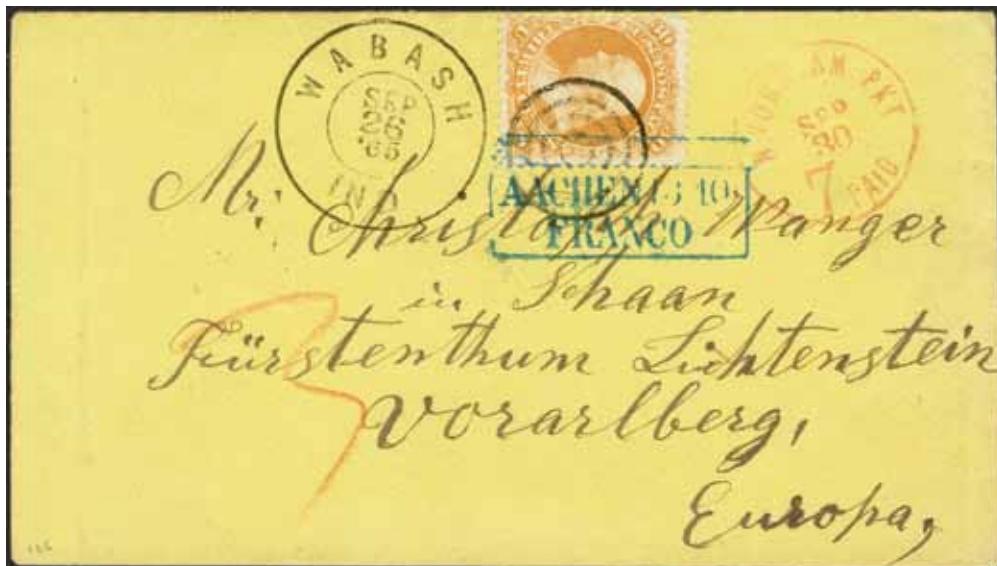 WABASH
SEP
26
'65
IND.
30 30
N. YORK AM. PKT
SEP
30
7
PAID
AACHEN 13 10
FRANCO
Mr. Christoph Wanger
in Schaan
Fürstenthum Lichtenstein
Vorarlberg,
Europa,
3